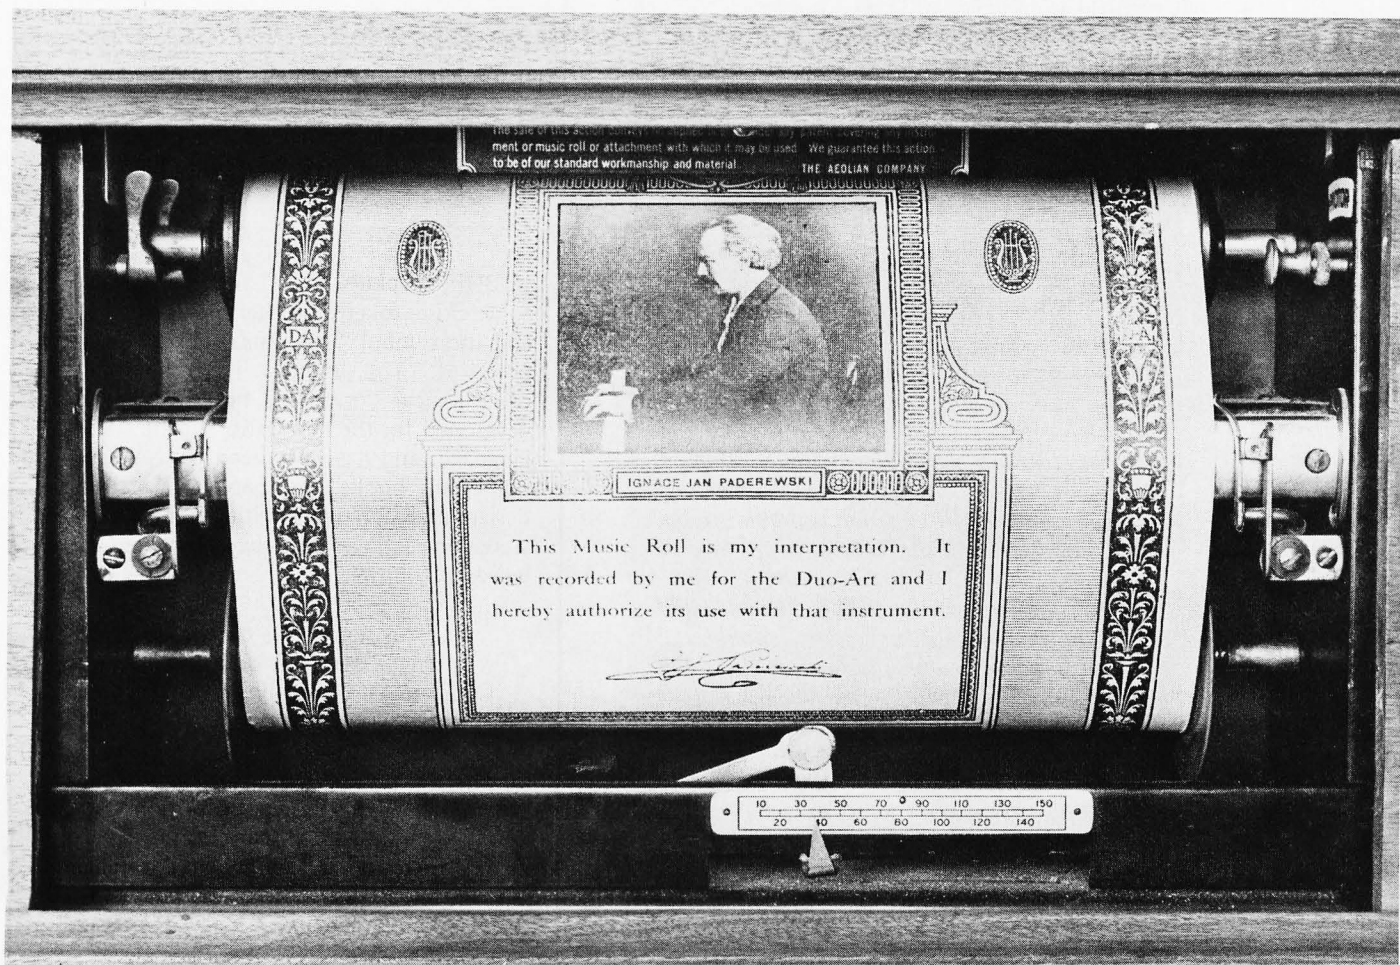 The sale of this action conveys no any patent covering any instru-
ment or music roll or attachment with which it may be used. We guarantee this action
to be of our standard workmanship and material.
THE AEOLIAN COMPANY
D·A
A
IGNACE JAN PADEREWSKI
This Music Roll is my interpretation. It
was recorded by me for the Duo-Art and I
hereby authorize its use with that instrument.
I. J. Paderewski
10 30 50 70 90 110 130 150
20 40 60 80 100 120 140